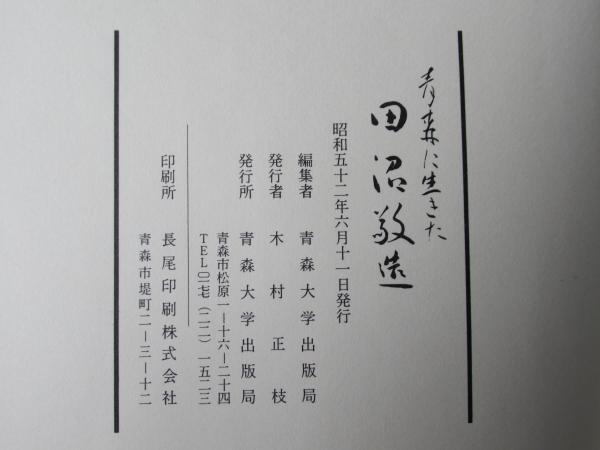 青森に生きた
田沼敬造
昭和五十二年六月十一日発行
編集者　青森大学出版局
発行者　木村正枝
発行所　青森大学出版局
青森市松原一―十六―二十四
TEL〇一七七（二二）一五二三
印刷所　長尾印刷株式会社
青森市堤町二―三―十二